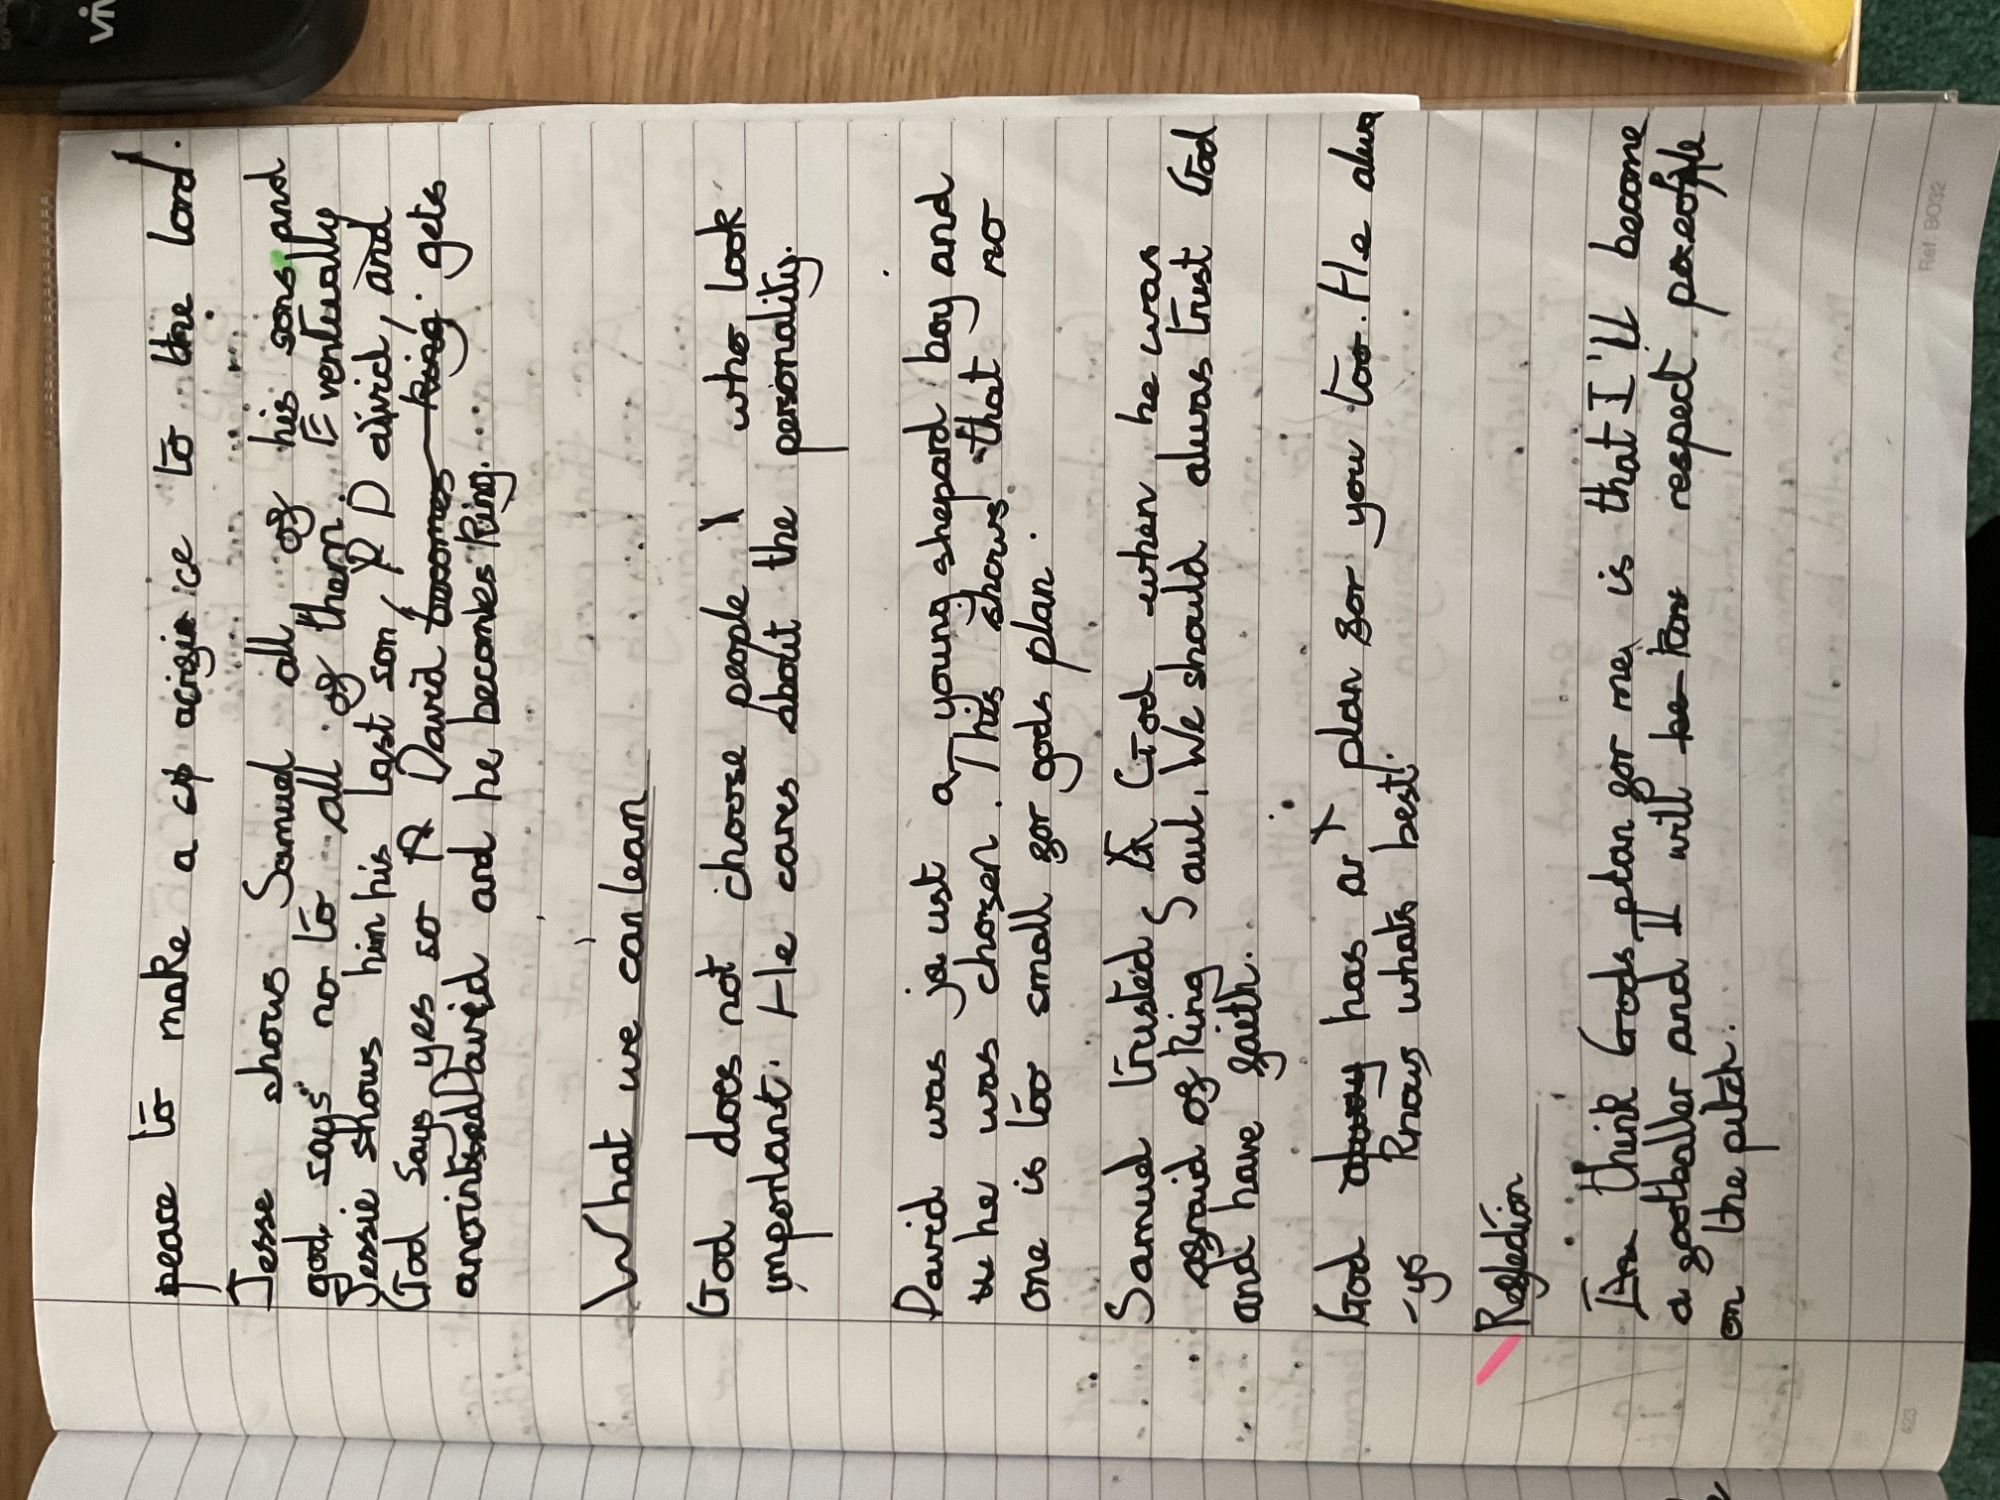 peace to make a sacrisice to the lord.
Jesse shows Samuel all of his sons and
god says no to all of them. Eventually
Jessie shows him his last son, David, and
God says yes so David becomes king. gets
anointed David and he becomes King.
What we can lean
God does not choose people who look
important. He cares about the personality.
David was just a young shepard boy and
he was chosen. This shows that no
one is too small for gods plan.
Samuel trusted God when he was
afraid of King Saul. We should always trust God
and have faith.
God has a plan for you too. He alwa
-ys knows whats best!
Reflection
I think Gods plan for me is that I'll become
a footballer and I will respect people
on the pitch.
Ref: 9032
423